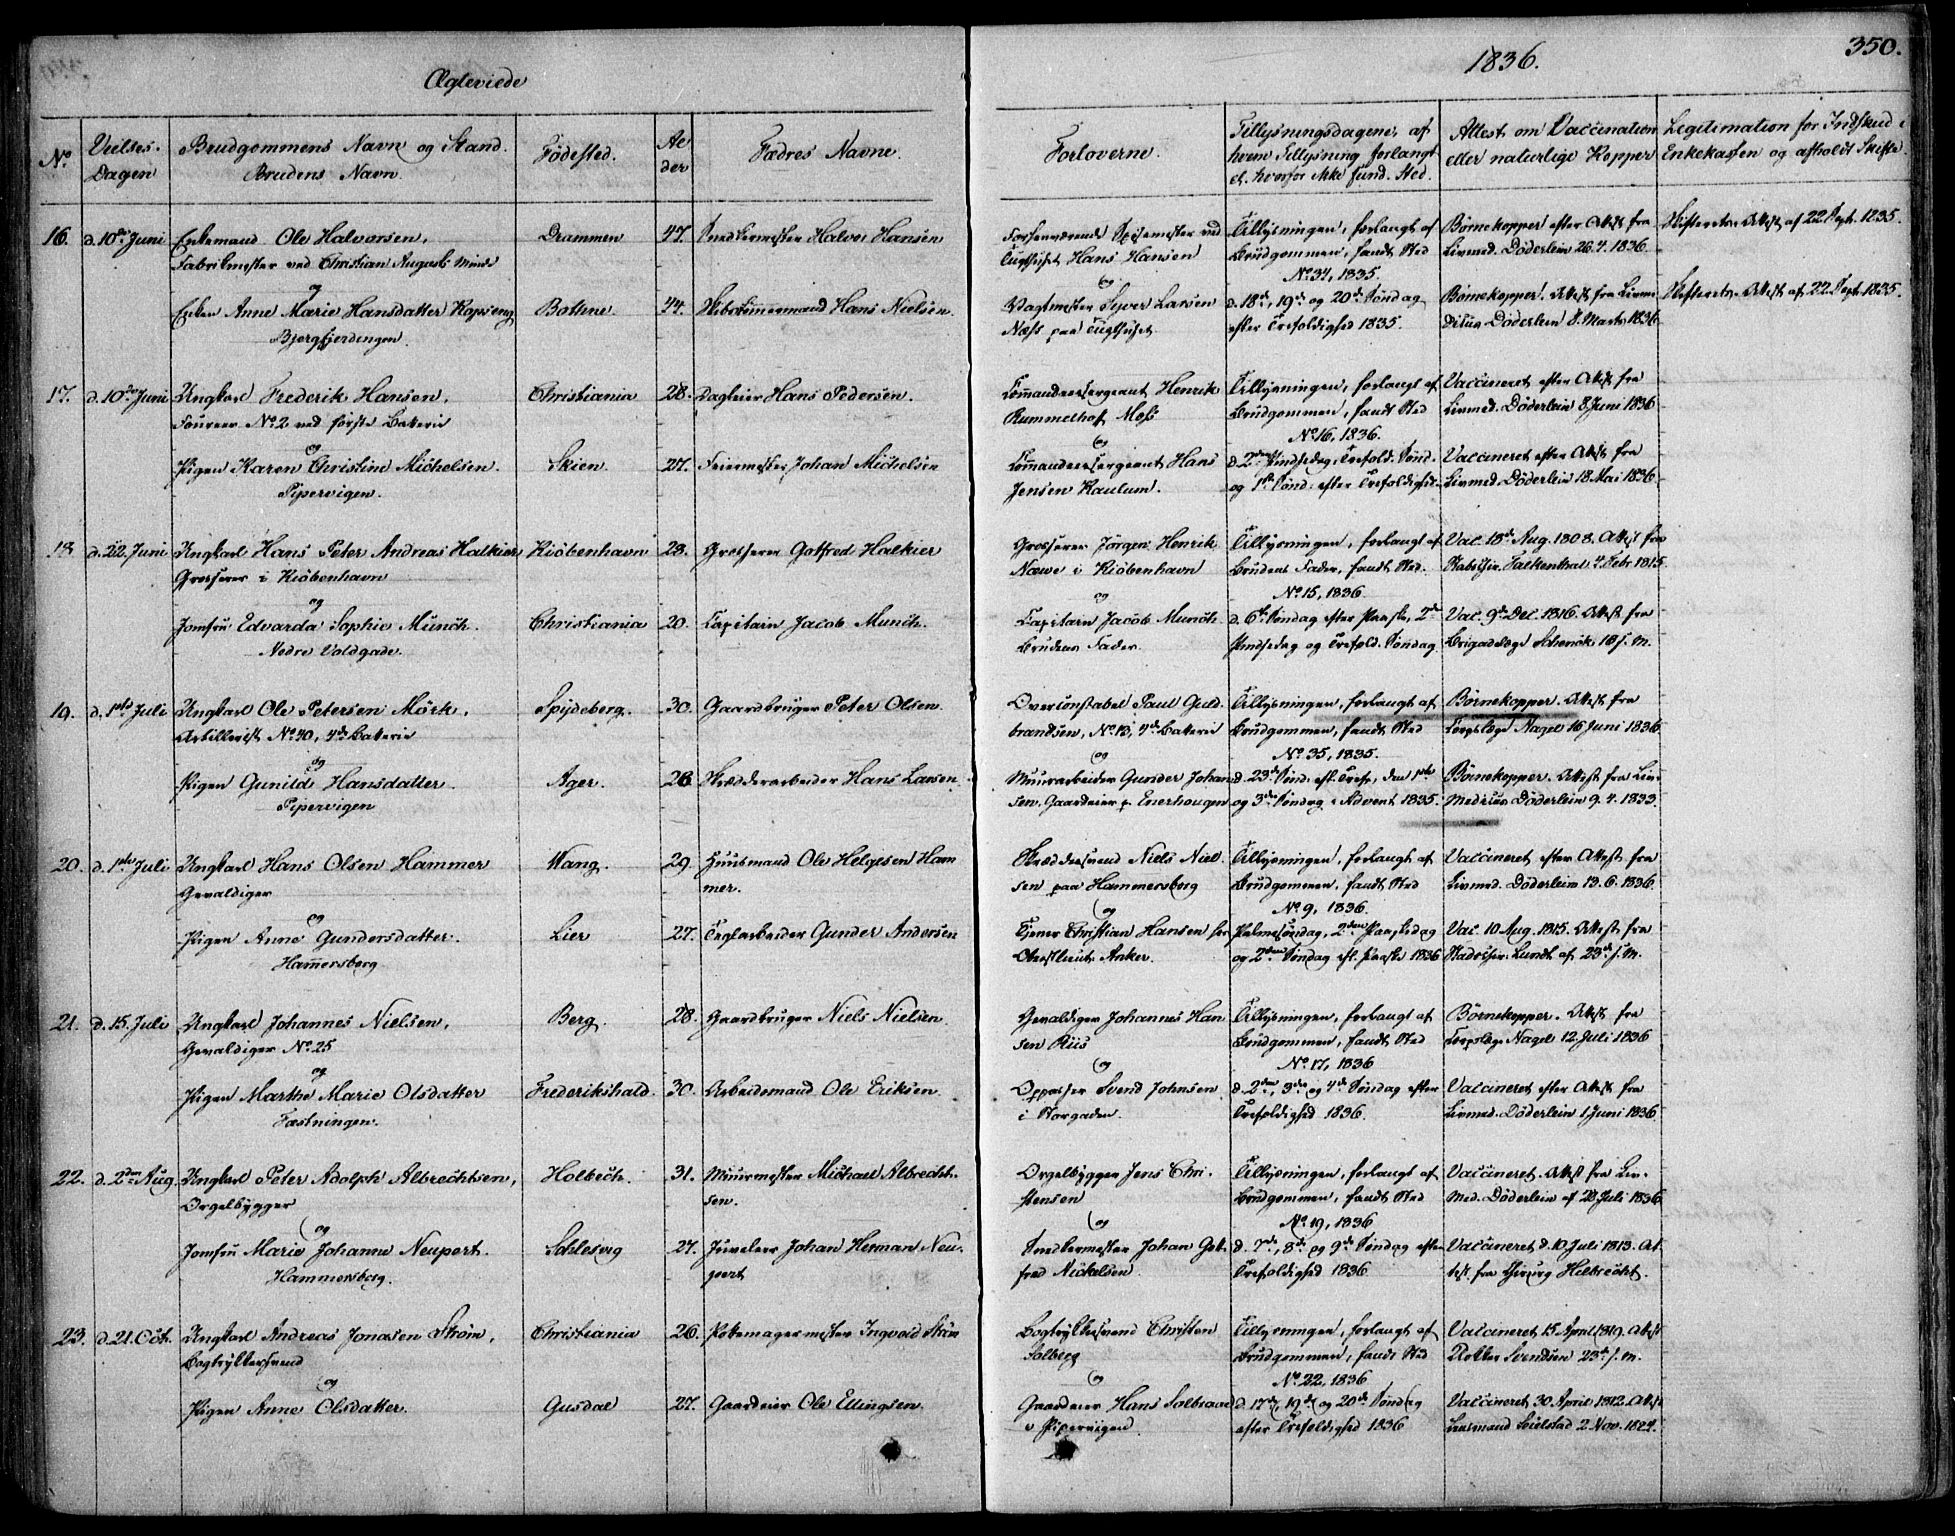 350.
Ægteviede
1836.
No.
Vielses-
Dagen
Brudgommens Navn og Stand.
Brudens Navn.
Fødested.
Al
der
Fædres Navne.
Forloverne.
Tillysningsdagene, af
hvem Tillysning forlangt
el. hvorfor ikke fund. Sted.
Attest om Vaccination
eller naturlige Kopper
Legitimation for Indskud i
Enkekassen og afholdt Skifte
16.
d. 10de Juni
Enkemand Ole Halvorsen,
Fabrikmester ved Christian Augusts Minde
og
Enken Anne Marie Hansdatter Kopseng
Bjergfjerdingen.
Drammen
Bothne.
47.
44.
Snedkermester Halvor Hansen
Skibstømmermand Hans Nielsen.
Forhenværende Spisemester ved
Tugthuset Hans Hansen
og
Vagtmester Syver Larsen
Næss paa Tugthuset
Tillysningen, forlangt af
Brudgommen, fandt Sted
No. 34, 1835.
d. 18de, 19de og 20de Søndag
efter Trefoldighed 1835.
Børnekopper efter Attest fra
Livmed. Döderlein 26.4.1836.
Børnekopper. Attest fra Livme
dikus Döderlein 8. Marts 1836.
Skifterets Attest af 22. Sept. 1835.
Skifterets Attest af 22. Sept. 1835.
17.
d. 10de Juni
Ungkarl Frederik Hansen,
Fourer No. 2 ved første Batterie
og
Pigen Karen Christine Michelsen.
Pipervigen.
Christiania
Skien.
28.
27.
Dagleier Hans Pedersen.
Feiermester Johan Michelsen
Commandeersergeant Henrik
Rummelhoff Moss
og
Commandeersergeant Hans
Jensen Kaulum.
Tillysningen, forlangt af
Brudgommen, fandt Sted
No. 16, 1836.
d. 2den Pindsedag, Trefold. Sønd.
og 1ste Sønd. efter Trefoldighed.
Vaccineret efter Attest fra
Livmed. Döderlein 8 Juni 1836
Vaccineret efter Attest fra
Livmed. Döderlein 18 Mai 1836.
18
d. 22. Juni
Ungkarl Hans Peter Andreas Halkier
Grosserer i Kiöbenhavn
og
Jomfru Edvarda Sophie Munch.
Nedre Voldgade.
Kiöbenhavn
Christiania
28.
20.
Grosserer Gotfred Halkier
Capitain Jacob Munch.
Grosserer Jörgen Henrik
i Kiöbenhavn
og
Capitain Jacob Munch
Brudens Fader.
Tillysningen, forlangt af
Brudens Fader, fandt Sted.
No. 15, 1836
d. 6te Søndag efter Paaske, 2den
Pindsedag og Trefold. Søndag.
Vac. 18de Aug. 1808. Attest fra
Falkenthal 4. Febr. 1815.
Vac. 9de Dec. 1816. Attest fra
Brigadelæge Schenck 18 s. m.
19.
d. 1ste Juli
Ungkarl Ole Petersen Mörk,
Artillerist No. 40, 4de Batterie
og
Pigen Gunild Hansdatter.
Pipervigen
Spydeberg.
Ager.
30.
26
Gaardbruger Peter Olsen
Skrædderarbeider Hans Larsen.
Overconstabel Paul Guld.
brandsen, No. 13, 4de Batterie
og
Muurarbeider Gunder Johan
sen, Gaardeier p. Enerhougen
Tillysningen, forlangt af
Brudgommen, fandt Sted
No. 35, 1835.
d. 23de Sønd. eft. Tref., den 1ste
og 3die Søndag i Advent 1835.
Børnekopper. Attest fra
Corpslæge Nagel 16 Juni 1836
Børnekopper. Attest fra Liv-
medicus Döderlein 9.4.1833.
20.
d. 1ste Juli
Ungkarl Hans Olsen Hammer
Gevaldiger
og
Pigen Anne Gundersdatter.
Hammersberg
Wang.
Lier
29.
27.
Huusmand Ole Helgesen Ham
mer.
Teglarbeider Gunder Andersen
Skræddersvend Niels Niel.
sen paa Hammersberg
og
Tjener Christian Hansen hos
Oberstlieut. Anker.
Tillysningen, forlangt af
Brudgommen, fandt Sted
No. 9, 1836.
Palmesøndag, 2den Paaskedag
og 2den Søndag eft. Paaske 1836
Vaccineret efter Attest fra
Livmed. Döderlein 13.6.1836.
Vac. 10 Aug. 1815. Attest fra
Lundt af 23de s. m.
21.
d. 15. Juli
Ungkarl Johannes Nielsen,
Gevaldiger No. 25
og
Pigen Marthe Marie Olsdatter
Fæstningen.
Berg.
Frederikshald.
28.
30.
Gaardbruger Niels Nielsen.
Arbeidsmand Ole Eriksen.
Gevaldiger Johannes Han
sen Riis
og
Oppasser Svend Johnsen
i Storgaden.
Tillysningen, forlangt af
Brudgommen, fandt Sted
No. 17, 1836
d. 2den, 3die og 4de Søndag efter
Trefoldighed 1836.
Børnekopper. Attest fra
Corpslæge Nagel 12. Juli 1836
Vaccineret efter Attest fra
Livmed. Döderlein 1 Juni 1836
22.
d. 2den Aug.
Ungkarl Peter Adolph Albrechtsen,
Orgelbygger
og
Jomfru Marie Johanne Neupert.
Hammersberg.
Holbech.
Schlesvig
31.
27.
Muurmester Michael Albrecht-
sen.
Juveleer Johan Herman Neu-
pert
Orgelbygger Jens Chri-
stensen
og
Snedkermester Johan Got-
fred Nickelsen
Tillysningen, forlangt af
Brudgommen, fandt Sted
No. 19, 1836
d. 7de, 8de og 9de Søndag efter
Trefoldighed 1836
Vaccineret. Attest fra Liv-
med. Döderlein af 28 Juli 1836
Vaccineret d. 10 Juli 1813. At-
test fra Chirurg
23.
d. 21. Oct.
Ungkarl Andreas Jonasen Ström,
Bogtrykkersvend
og
Pigen Anne Olsdatter.
Christiania
Gusdal
26.
27.
Pottemagermester Ingvold Ström
Gaardeier Ole Ellingsen.
Bogtrykkersvend Christen
Solberg
og
Gaardeier Hans Solbraae
i Pipervigen
Tillysningen, forlangt af
Brudgommen, fandt Sted
No. 22, 1836
d. 17de, 19de og 20de Søndag
efter Trefoldighed 1836
Vaccineret 15 April 1819. Attest
Svendsen 23de s. m.
Vaccineret 30 April 1812. Attest
2 Nov. 1824.